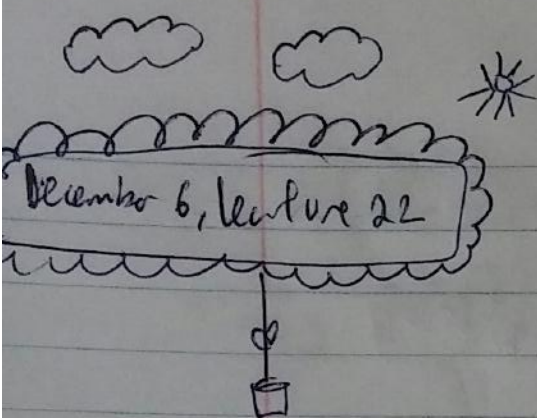 December 6, Lecture 22